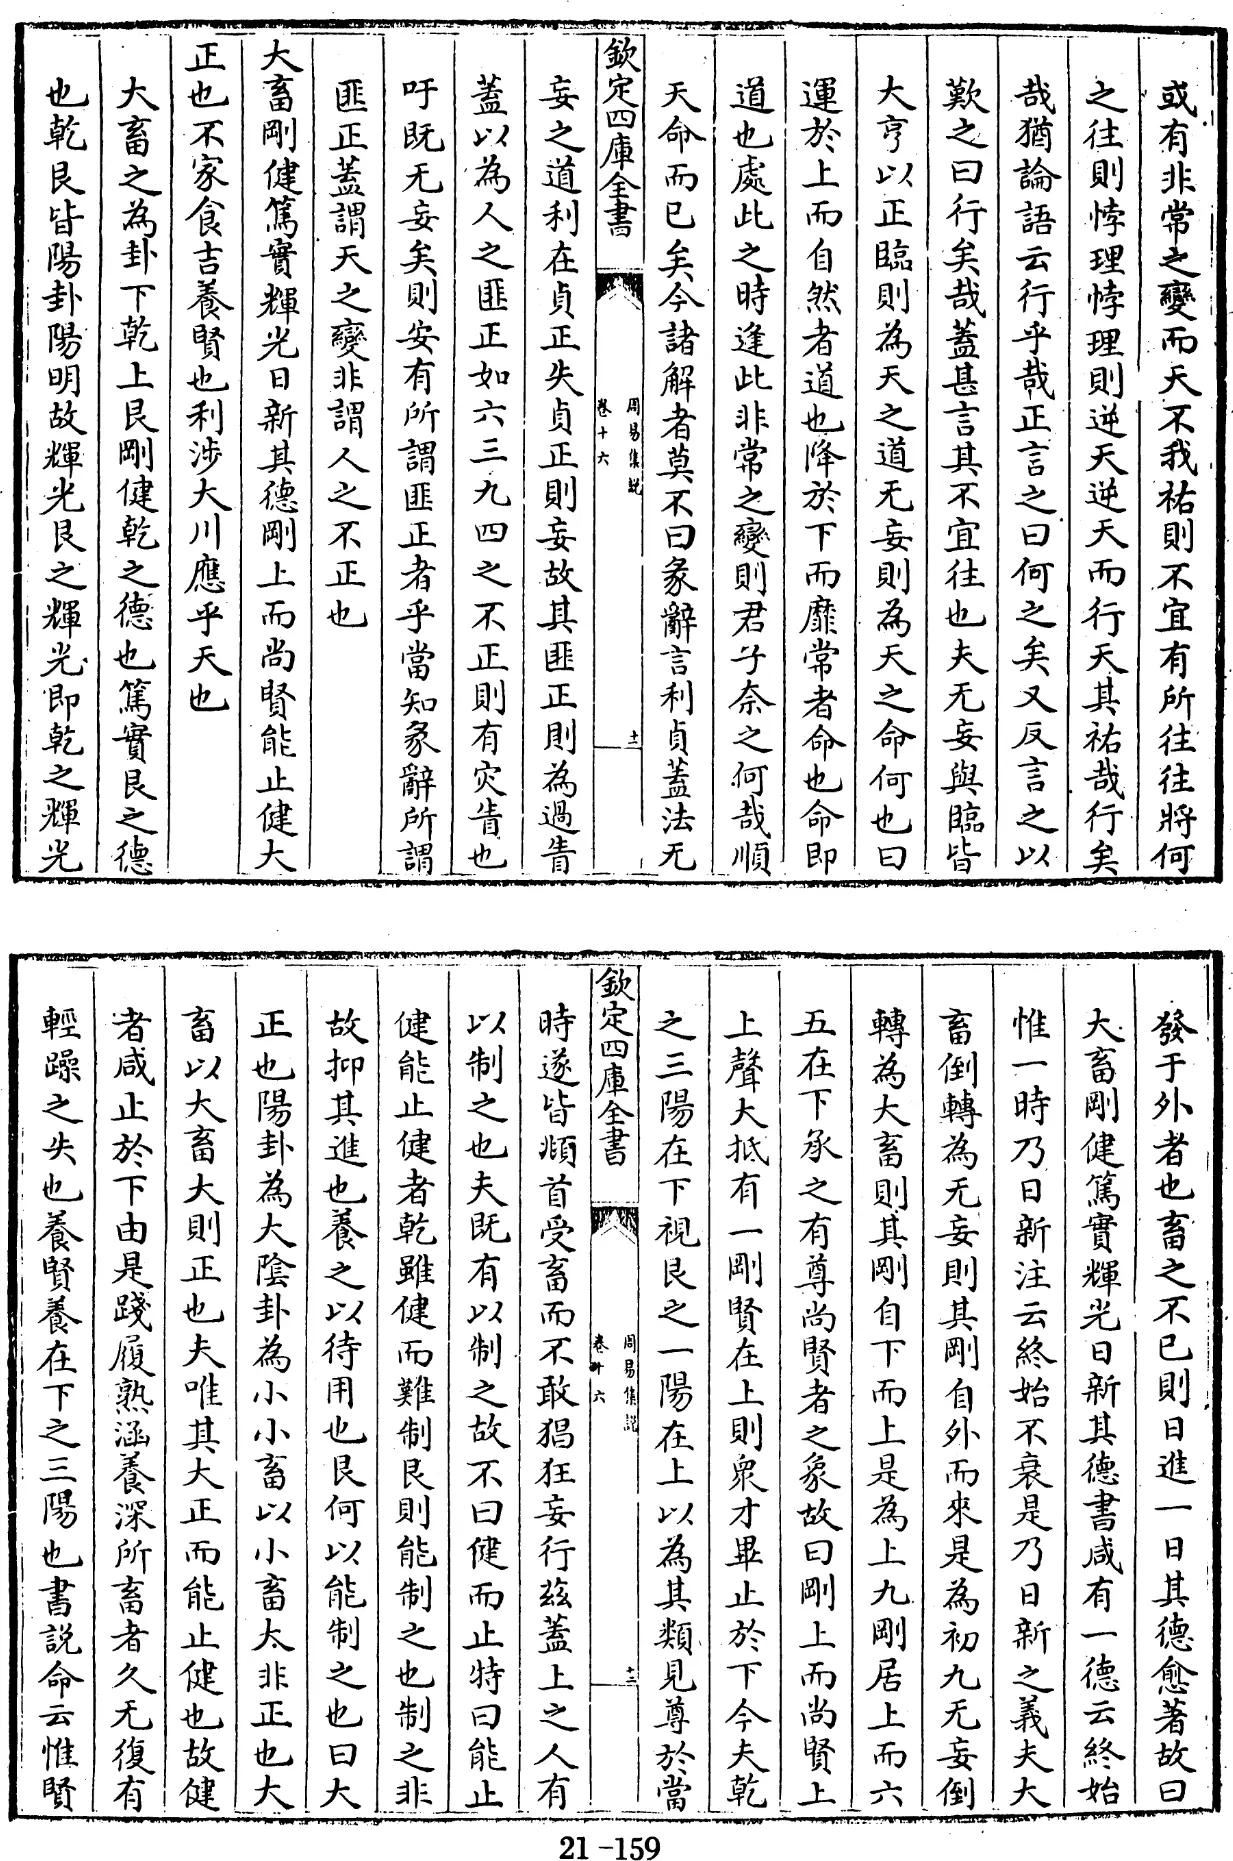 或有非常之變而天不我祐則不宜有所往往將何
之往則悖理悖理則逆天逆天而行天其祐哉行矣
哉猶論語云行乎哉正言之曰何之矣又反言之以
歎之曰行矣哉蓋甚言其不宜往也夫无妄與臨皆
大亨以正臨則為天之道无妄則為天之命何也曰
運於上而自然者道也降於下而靡常者命也命即
道也處此之時逢此非常之變則君子奈之何哉順
天命而已矣今諸解者莫不曰彖辭言利貞蓋法无
欽定四庫全書
周易集說
卷十六
十二
妄之道利在貞正失貞正則妄故其匪正則為過眚
蓋以為人之匪正如六三九四之不正則有灾眚也
吁既无妄矣則安有所謂匪正者乎當知彖辭所謂
匪正蓋謂天之變非謂人之不正也
大畜剛健篤實輝光日新其德剛上而尚賢能止健大
正也不家食吉養賢也利涉大川應乎天也
大畜之為卦下乾上艮剛健乾之德也篤實艮之德
也乾艮皆陽卦陽明故輝光艮之輝光即乾之輝光
發于外者也畜之不已則日進一日其德愈著故曰
大畜剛健篤實輝光日新其德書咸有一德云終始
惟一時乃日新注云終始不衰是乃日新之義夫大
畜倒轉為无妄則其剛自外而來是為初九无妄倒
轉為大畜則其剛自下而上是為上九剛居上而六
五在下承之有尊尚賢者之象故曰剛上而尚賢上
上聲大抵有一剛賢在上則衆才畢止於下今夫乾
之三陽在下視艮之一陽在上以為其類見尊於當
欽定四庫全書
周易集說
卷十六
十三
時遂皆順首受畜而不敢猖狂妄行兹蓋上之人有
以制之也夫既有以制之故不曰健而止特曰能止
健能止健者乾雖健而難制艮則能制之也制之非
故抑其進也養之以待用也艮何以能制之也曰大
正也陽卦為大陰卦為小小畜以小畜大非正也大
畜以大畜大則正也夫唯其大正而能止健也故健
者咸止於下由是踐履熟涵養深所畜者久无復有
輕躁之失也養賢養在下之三陽也書說命云惟賢
21-159